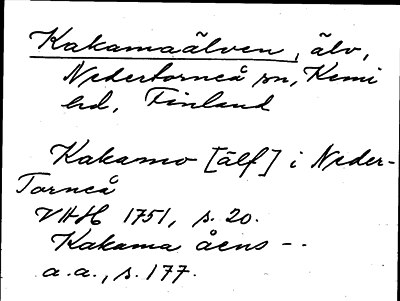 Kakamaälven, älv,
Nedertorneå sn, Kemi
hd, Finland
Kakamo [älf] i Neder-
Torneå
VAH 1751, s. 20.
Kakama åens - -
a.a., s. 177.